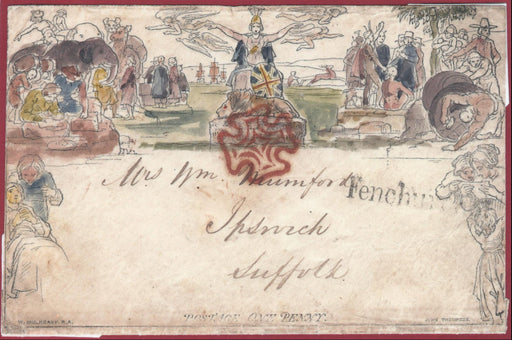 Mrs Wm. Mumford
Fenchu
Ipswich
Suffolk
POSTAGE ONE PENNY.
W. MULREADY, R.A.
JOHN THOMPSON